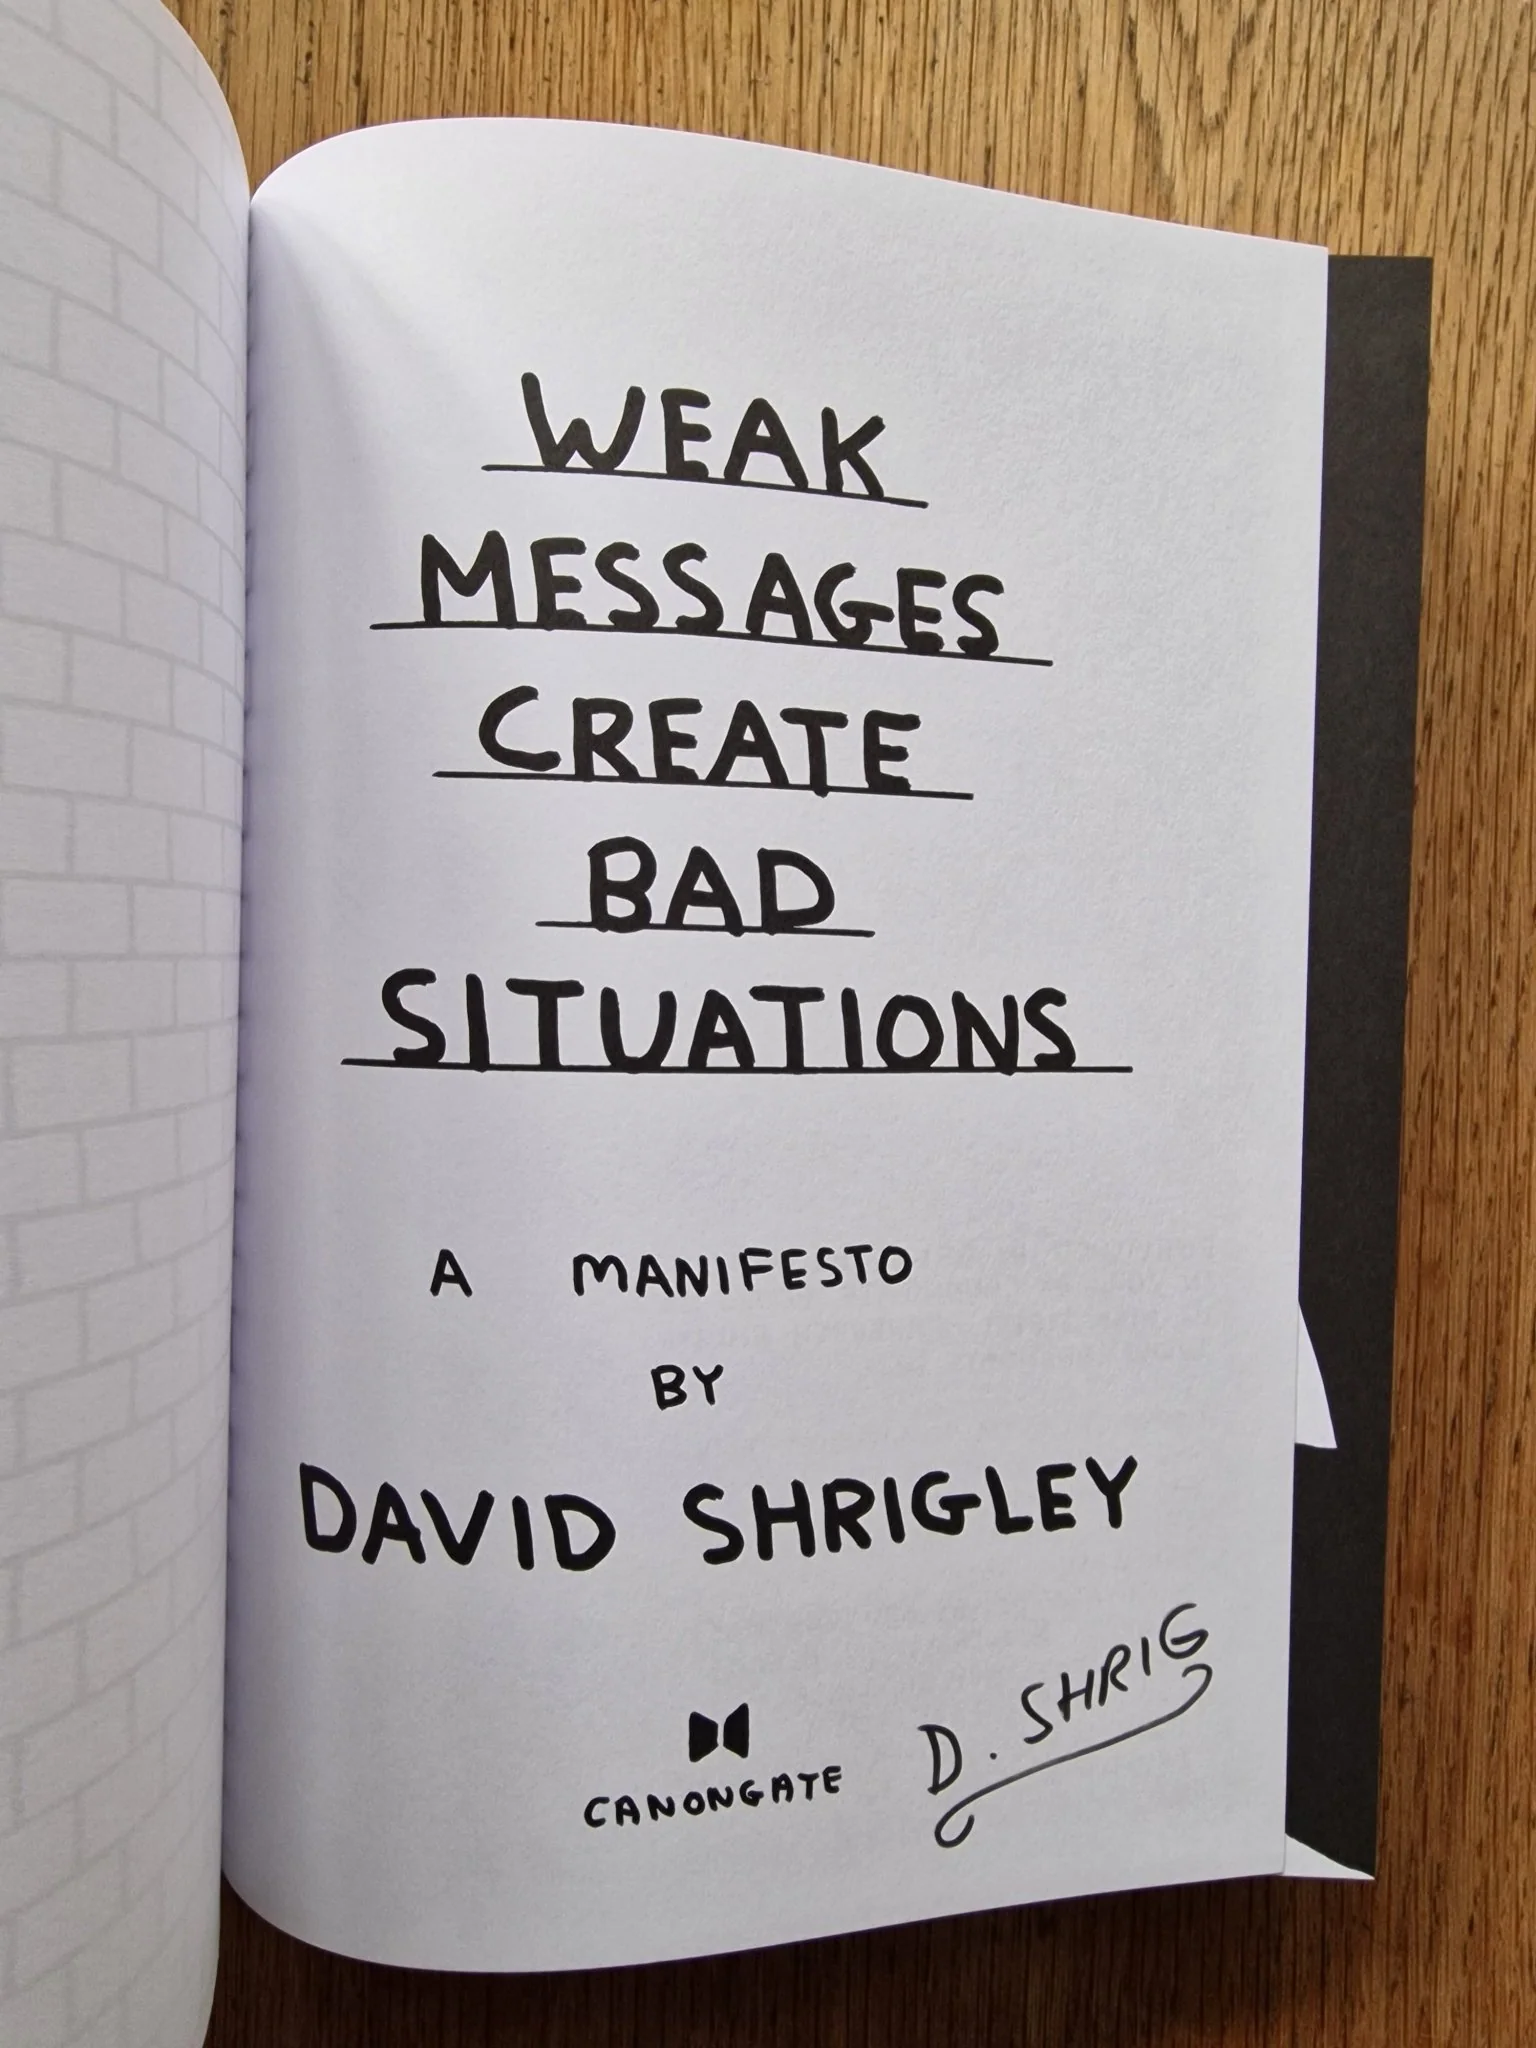 WEAK
MESSAGES
CREATE
BAD
SITUATIONS
A MANIFESTO
BY
DAVID SHRIGLEY
D. SHRIG
CANONGATE